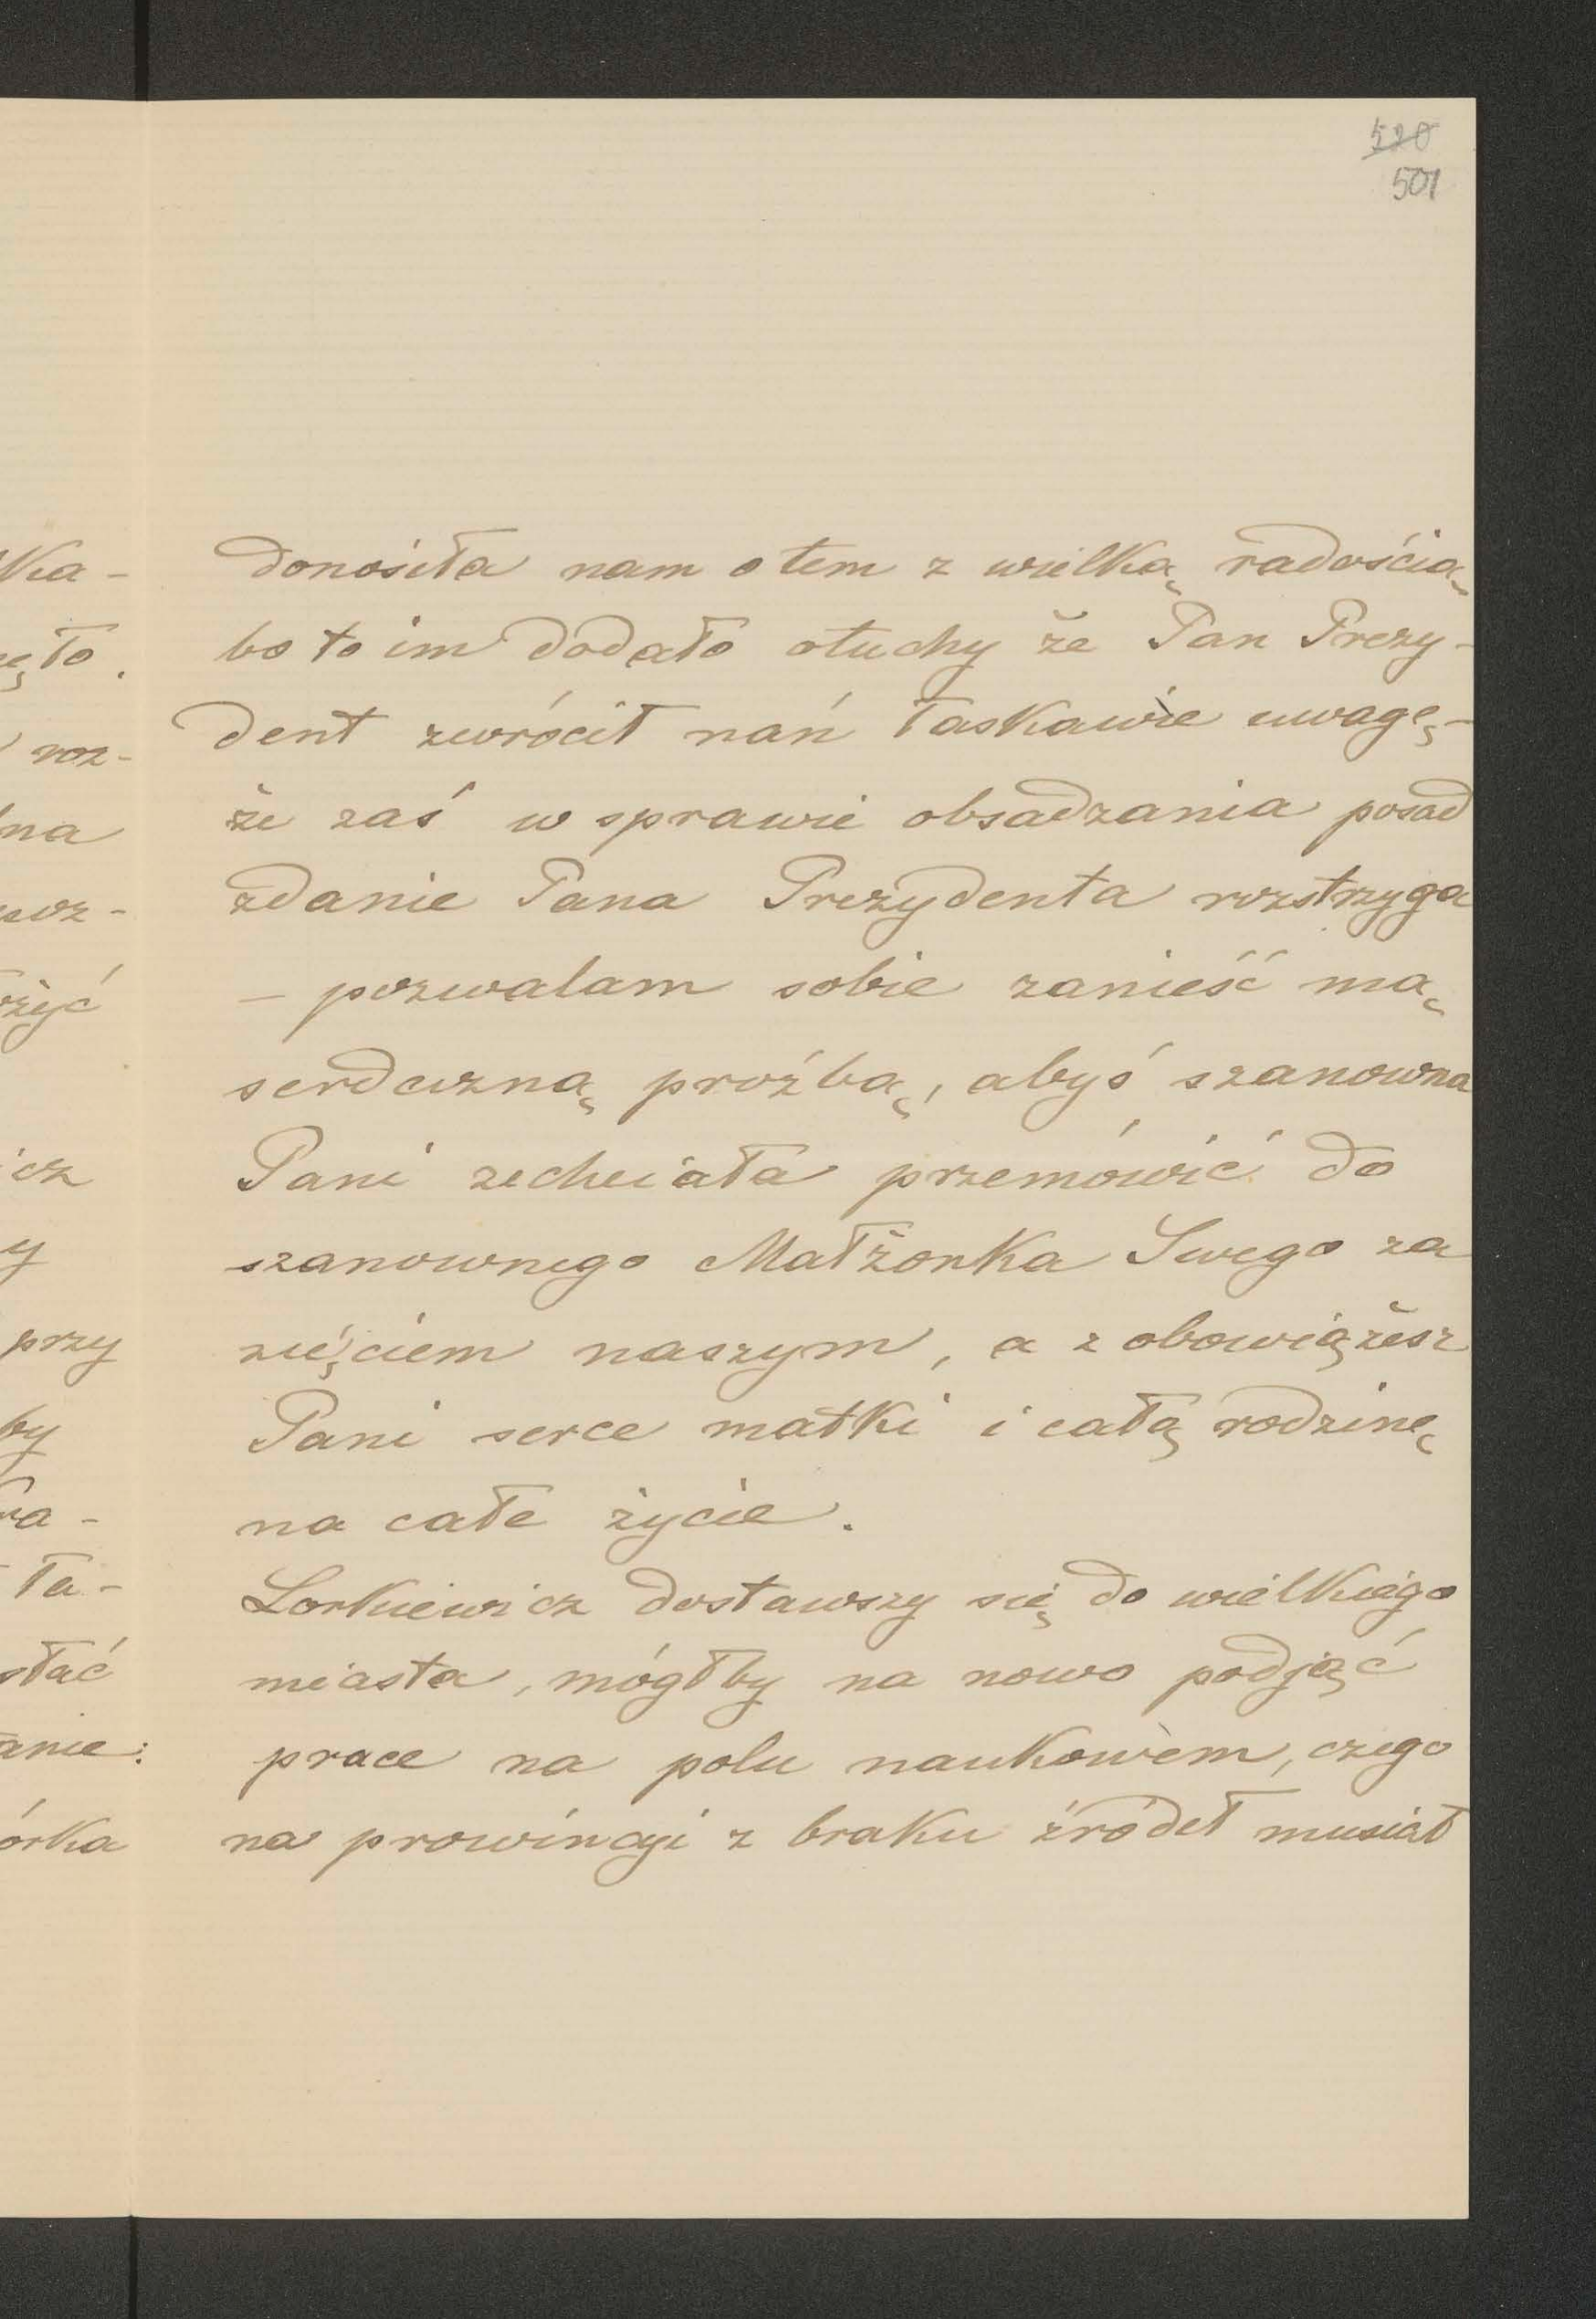 520
501
donosiła nam o tem z wielką radością
bo to im dodało otuchy że Pan Prezy-
dent zwrócił nań łaskawie uwagę -
że zaś w sprawie obsadzania posad
zdanie Pana Prezydenta rozstrzyga
- pozwalam sobie zanieść mą
serdeczną proźbą, abyś szanowna
Pani zechciała przemówić do
szanownego Małżonka Swego za
zięciem naszym, a zobowiążesz
Pani serce matki i całą rodzinę
na całe życie.
Lorkiewicz dostawszy się do wielkiego
miasta, mógłby na nowo podjąć
prace na polu naukowem, czego
na prowincyi z braku źródeł musiał